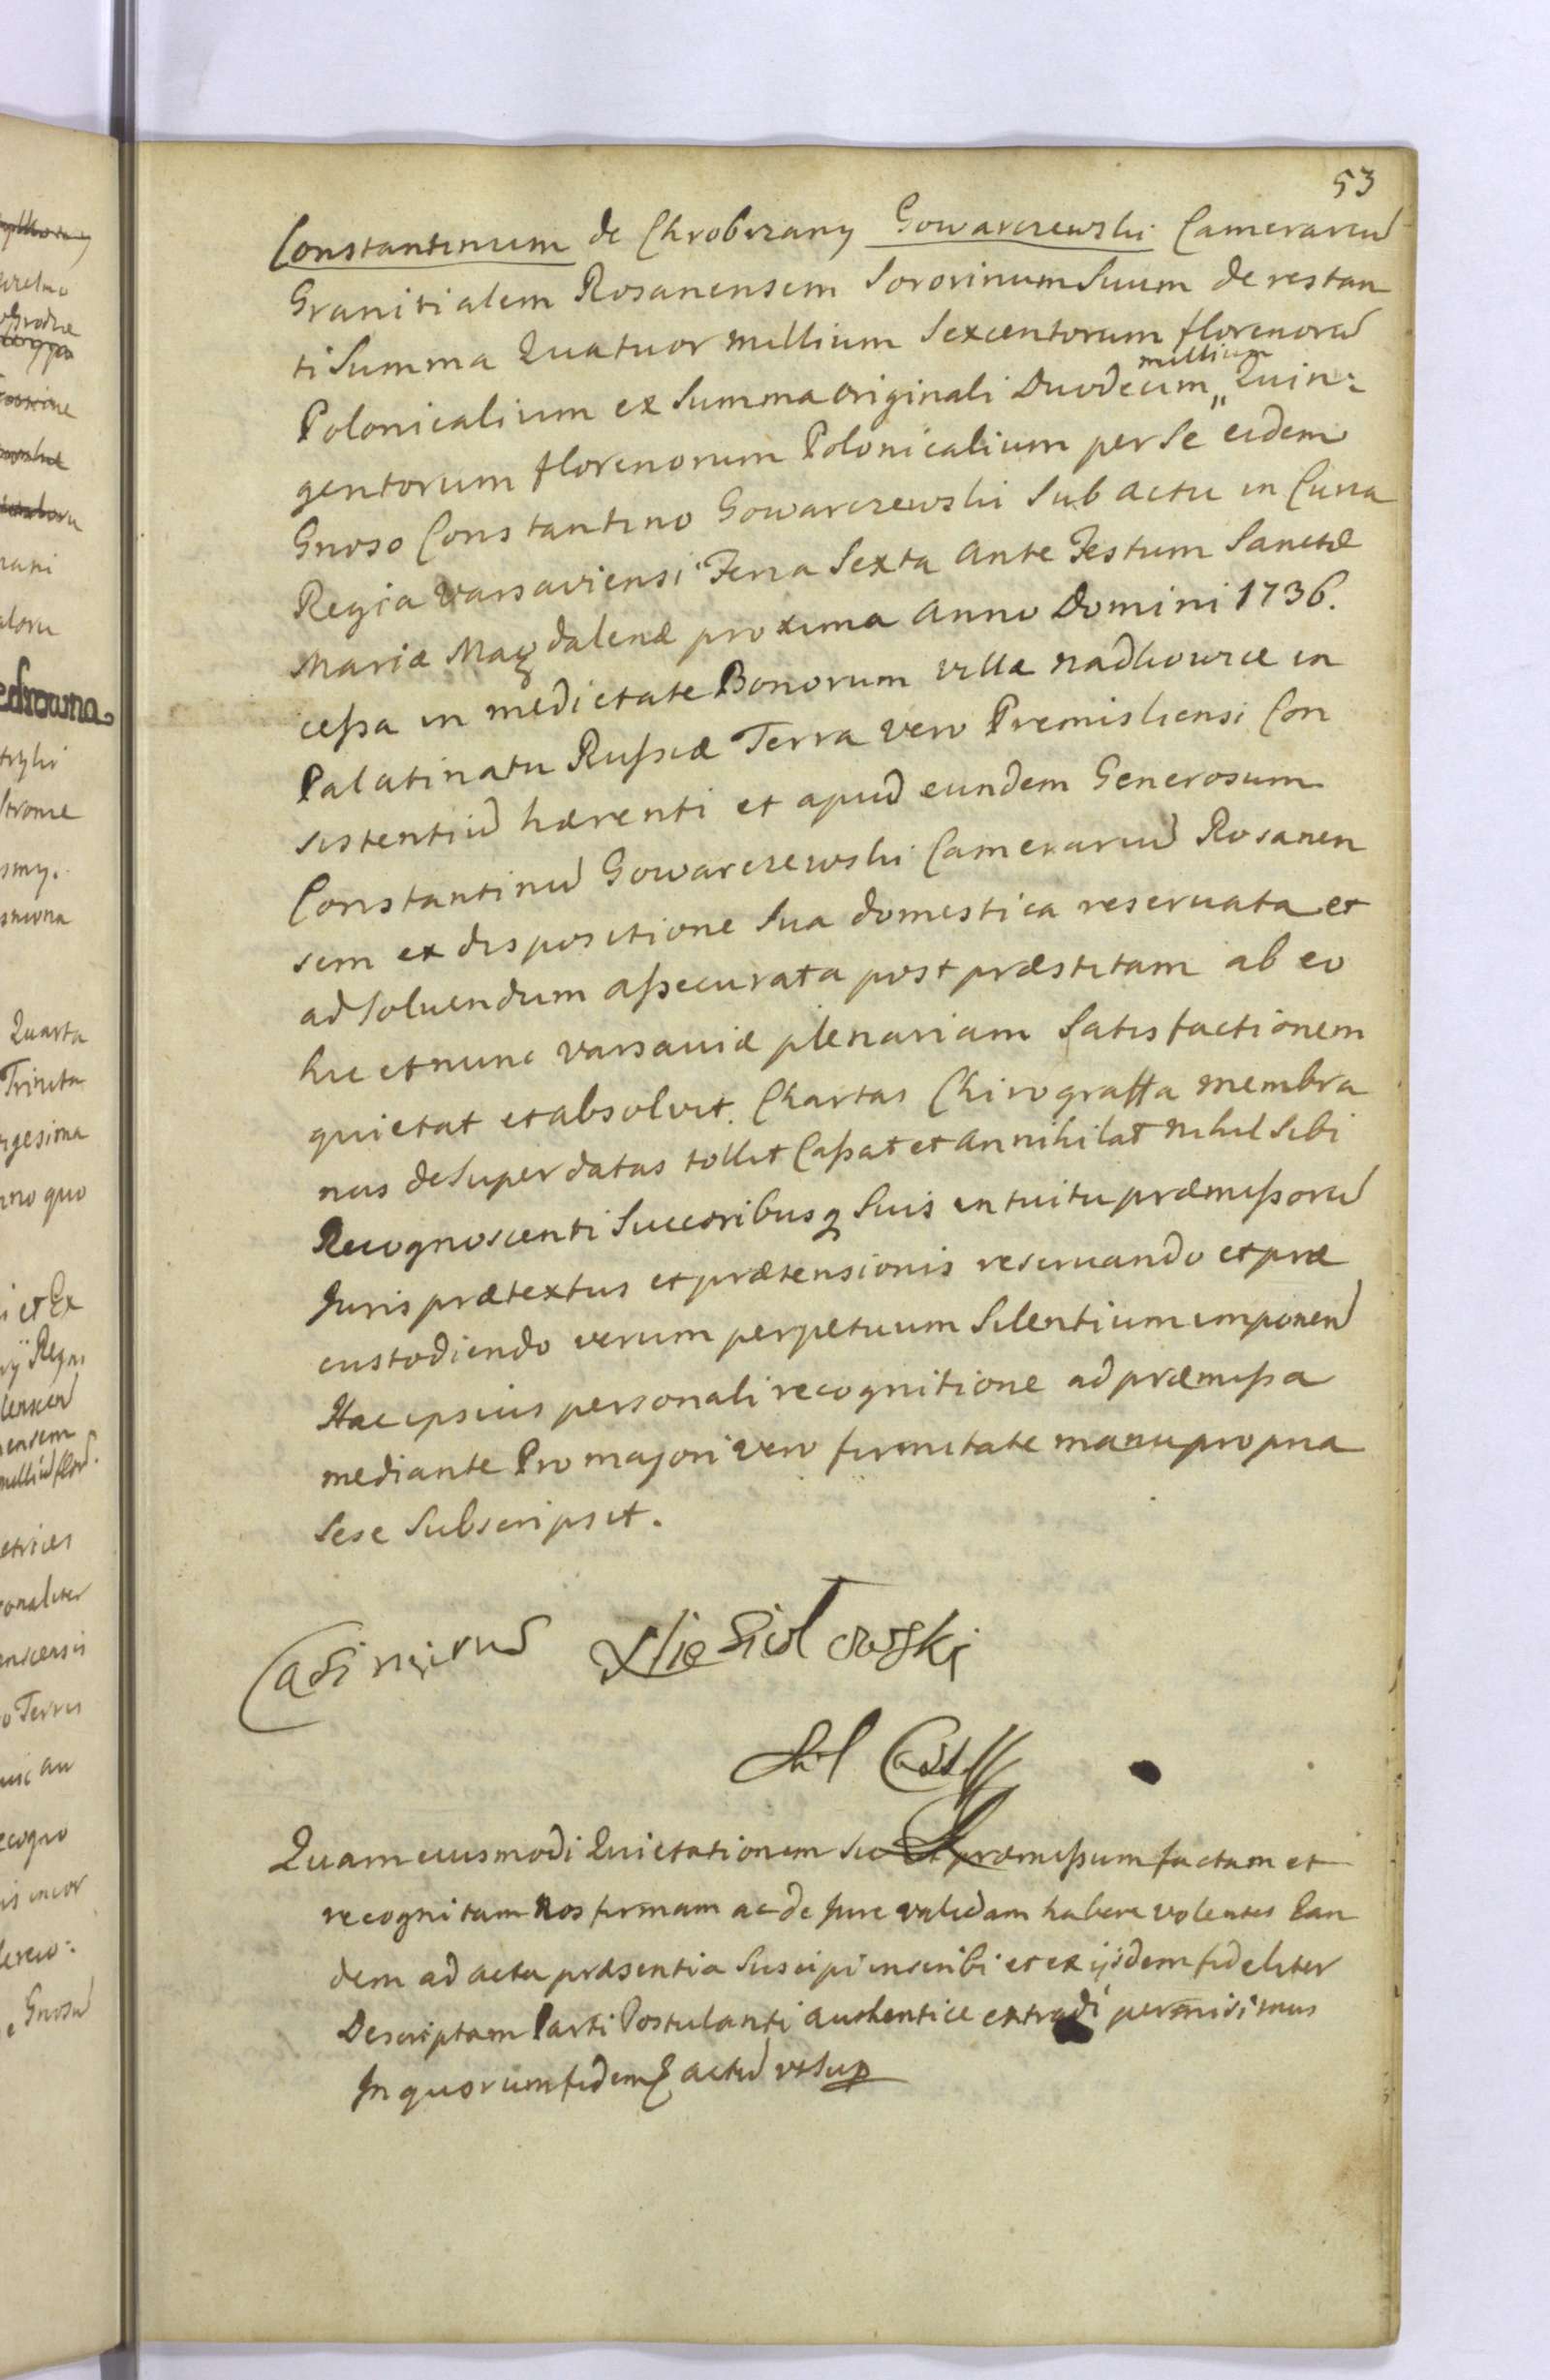 53
Constantinum de Chrobrzany Gowarczewski Camerariu
Granitialem Rosanensem Sororinum Suum de restan
ti Summa Quatuor millium Sexcentorum florenoru
millium
Polonicalium ex Summa originali Duodecim „ Quin:
gentorum florenorum Polonicalium per Se eidem
Gnoso Constantino Gowarczewski Sub actu in Curia
Regia Varsaviensi Feria Sexta ante Festum Sanctæ
Mariæ Magdalenæ proxima Anno Domini 1736.
cessa in medietate Bonorum villæ nadkowice in
Palatinatu Russiæ Terra vero Premisliensi Con
sistentiu hærenti et apud eundem Generosum
Constantinu Gowarczewski Camerariu Rosanen
sem ex dispositione Sua domestica reservata et
ad Soluendum assecurata post præstitam ab eo
hic et nunc Varsaviæ plenariam Satisfactionem
quietat et absolvit. Chartas Chirograffa membra
nas desuper datas tollit Cassat et Annihilat nihil Sibi
Recognoscenti Succoribusq Suis intuitu præmissoru
Juris prætextus et prætensionis reservando et præ
custodiendo verum perpetuum Silentium imponend
Hac ipsius personali recognitione ad præmissa
mediante Pro majori vero firmitate manu propria
Sese Subscripsit.
Casimirus Niesiołowski
Quam eiusmodi Quietationem Sic ut præmissum factam et
recognitam Nos firmam ac de Jure validam habere volentes Ean
dem ad acta præsentia Suscipi inscribi et ex ijsdem fideliter
Descriptam Parti Postulanti authentice extradi permisimus
In quorum fidem & actu ut Sup